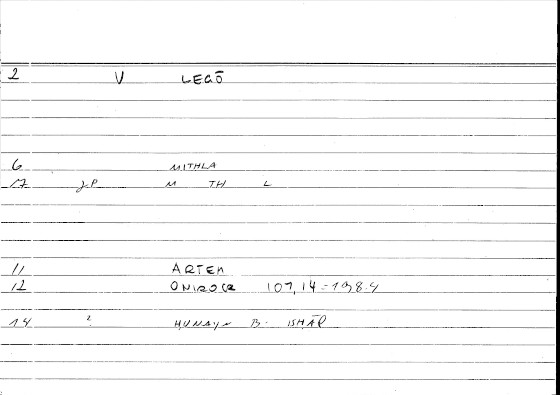 2 V LEGŌ
6 MITHLA
17 J.P M TH L
11 ARTEM
12 ONIROCR 107,14 = 198.4
14 ? HUNAYN B. ISHĀQ